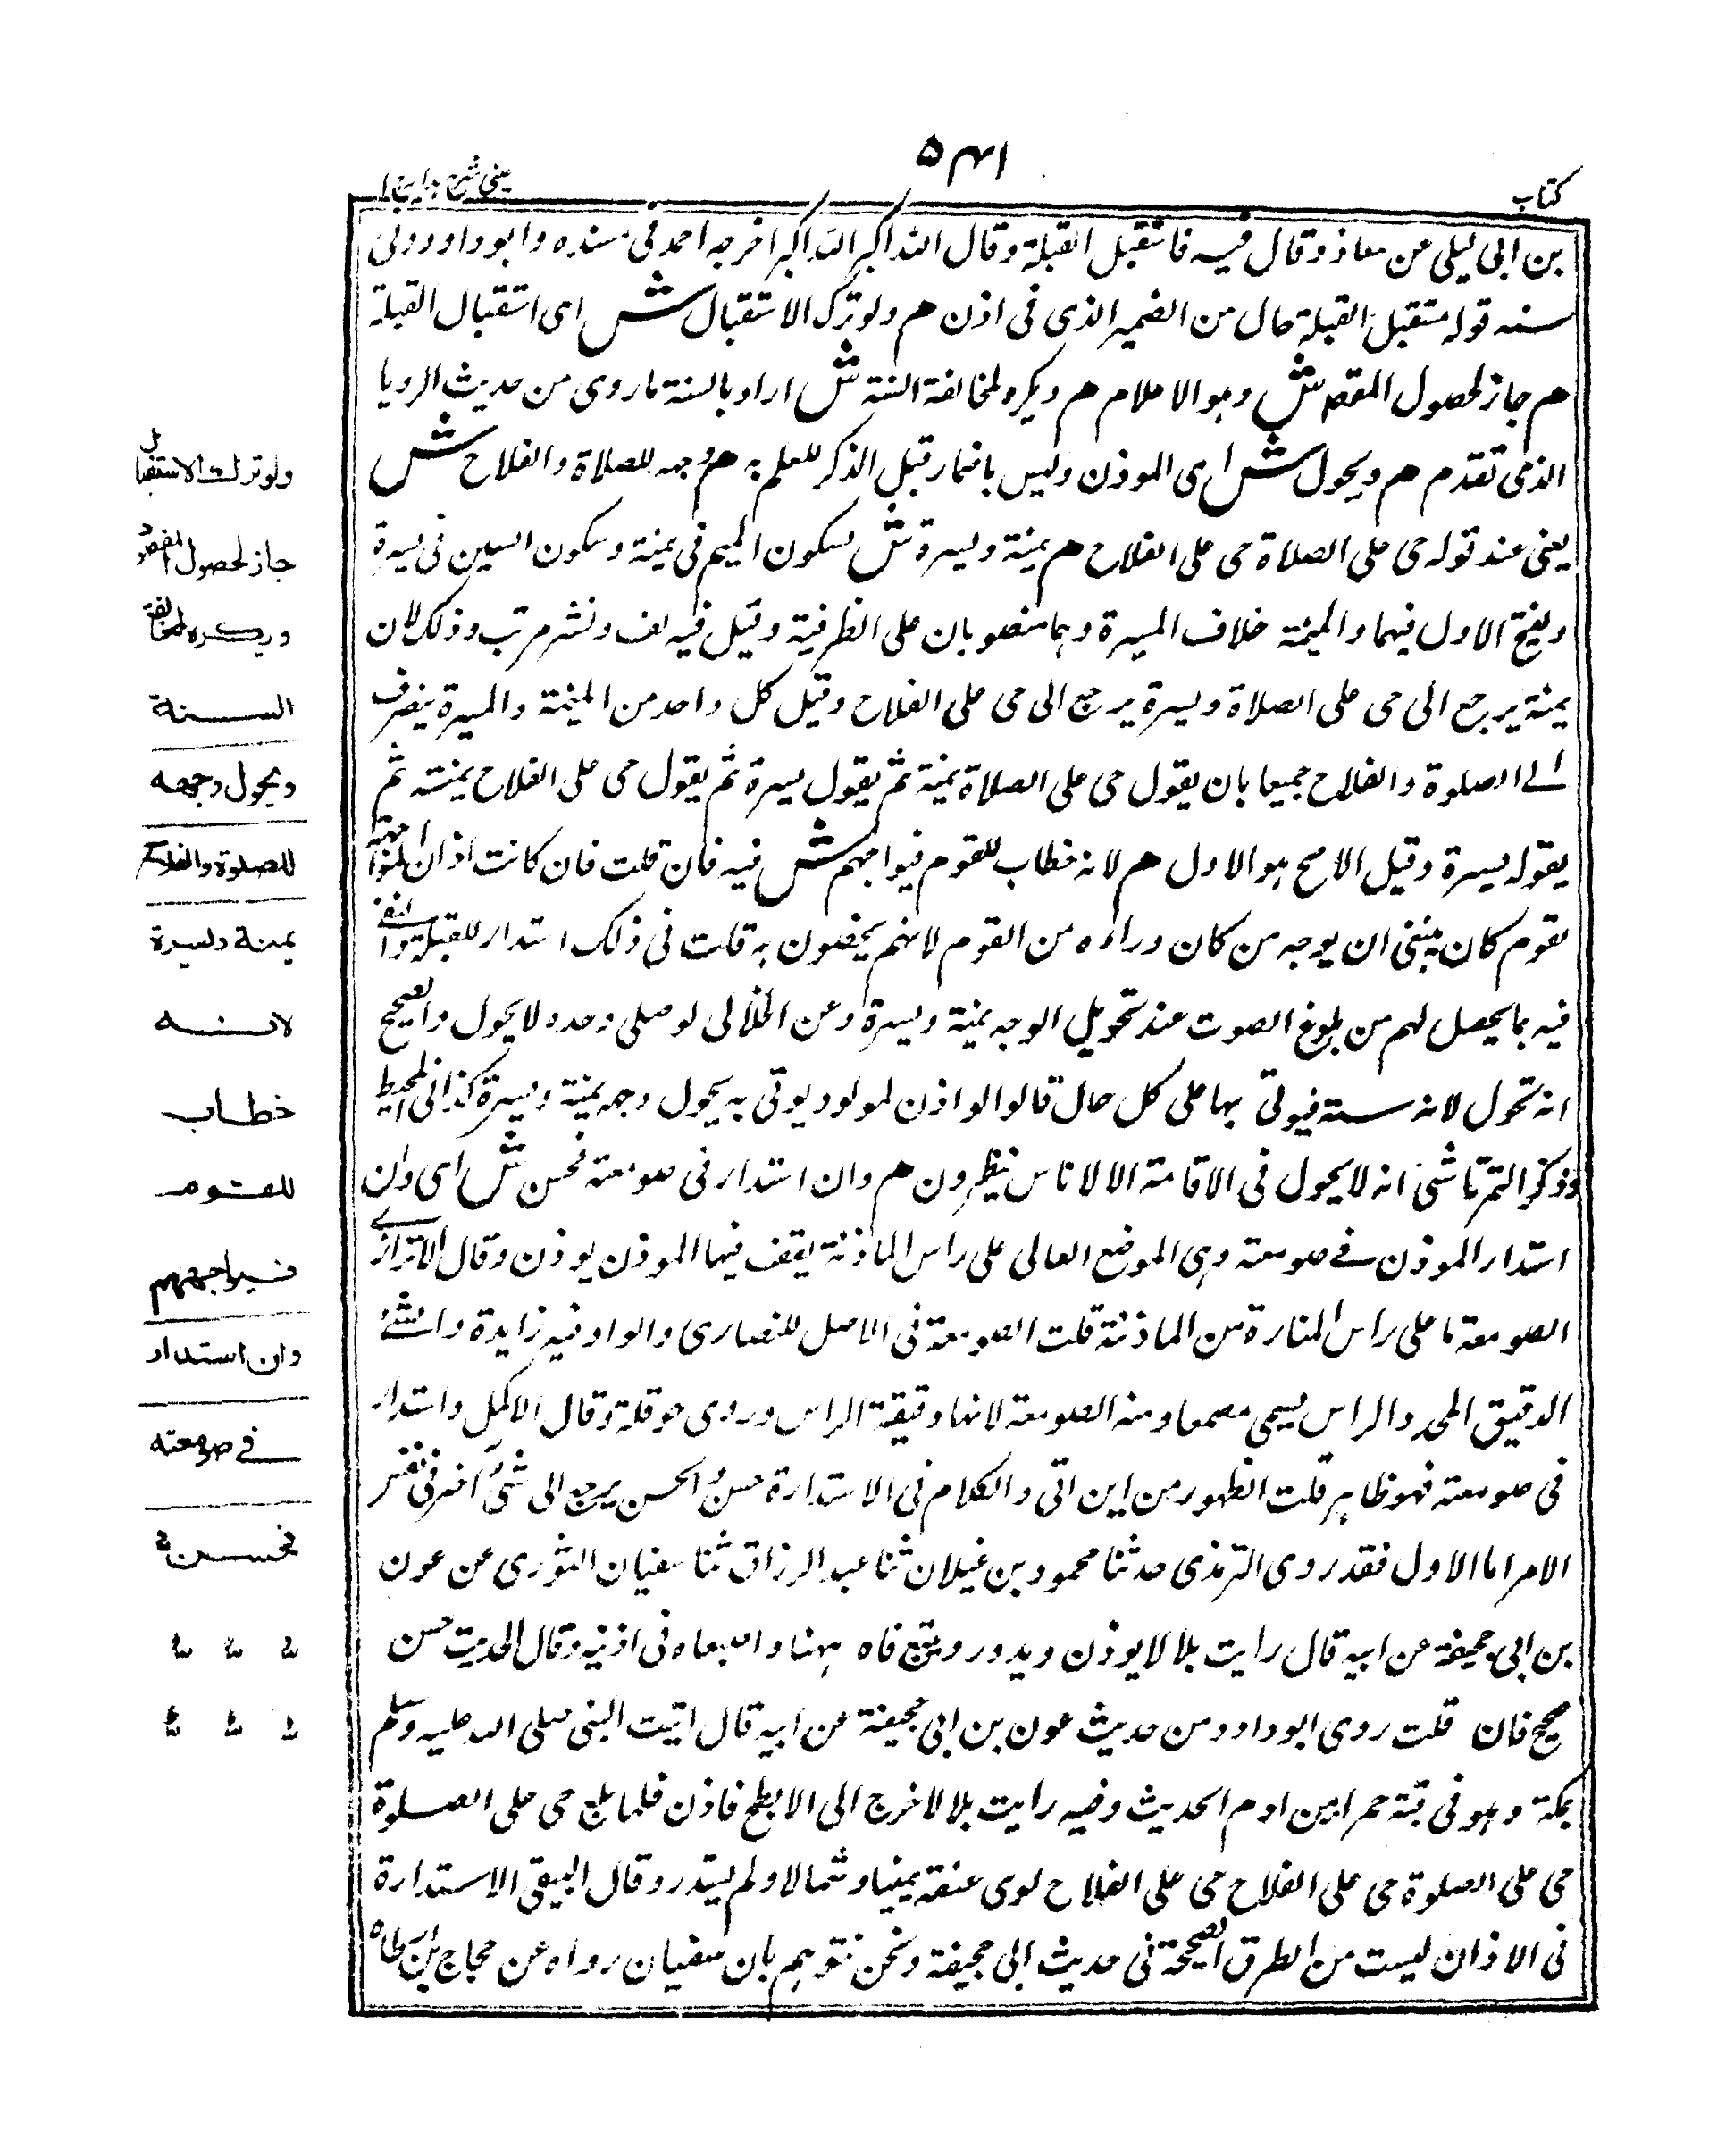 كتاب
٥٤١
عيني شرح هدايه ج ١
بن ابى ليلى عن معاذ وقال فيه فاستقبل القبلة وقال الله اكبر الله اكبر اخرجه احمد فى مسنده وابو داود فى
سننه قوله مستقبل القبلة حال من الضمير الذى فى اذن هم ولو ترك الاستقبال ش اى استقبال القبلة
هم جاز لحصول المقصود ش وهو الاعلام هم ويكره لمخالفة السنة ش اراد بالسنة ما روى من حديث الرويا
الذى تقدم هم ويحول ش اى الموذن وليس باضمار قبل الذكر للعلم به هم وجهه للصلاة والفلاح ش
يعنى عند قوله حى على الصلاة حى على الفلاح هم يمنة ويسرة ش بسكون الميم فى يمنة وسكون السين فى يسرة
وبفتح الاول فيهما والميمنة خلاف الميسرة وهما منصوبان على الظرفية وقيل فيه لف ونشر مرتب وذلك لان
يمنة يرجع الى حى على الصلاة ويسرة يرجع الى حى على الفلاح وقيل كل واحد من الميمنة والميسرة ينصرف
الے الصلوة والفلاح جميعا بان يقول حى على الصلاة يمنة ثم يقول يسرة ثم يقول حى على الفلاح يمنته ثم
يقوله يسرة وقيل الاصح هو الاول هم لانه خطاب للقوم فيواجههم ش فيه فان قلت فان كانت اذان المواجهة
لقوم كان ينبغى ان يوجه من كان وراءه من القوم لانهم يخصون به قلت فى ذلك استدار للقبلة واكتفے
فيه بما يحصل لهم من بلوغ الصوت عند تحويل الوجه يمنة ويسرة وعن الحلوانى لو صلى وحده لا يحول والصحيح
انه تحول لانه سنة فيوتى بها على كل حال قالوا لو اذن لمولود يوتى به يحول وجهه يمنة ويسرة كذا فى المحيط
وذكر التمرتاشى انه لا يحول فى الاقامة الا لاناس ينظرون هم وان استدار فى صومعته فحسن ش اى وان
استدار الموذن فے صومعته وهى الموضع العالى على راس الماذنة يقف فيها الموذن يوذن وقال الاترازے
الصومعة ما على راس المنارة من الماذنة قلت الصومعة فى الاصل للنصارى والواو فيه زايدة والشئ
الدقيق المحدد الراس يسمى مصمعا ومنه الصومعة لانها دقيقة الراس وروى حوقلة وقال الاكمل واستدار
فى صومعته فهو ظاهر قلت الظهور من اين اتى والكلام فى الاستدارة حسن والحسن يرجع الى شئ آخر فى نفس
الامر اما الاول فقد روى الترمذى حدثنا محمود بن غيلان ثنا عبد الرزاق ثنا سفيان الثورى عن عون
بن ابى جحيفة عن ابيه قال رايت بلالا يوذن ويدور ويتبع فاه ههنا واصبعاه فى اذنيه وقال الحديث حسن
صحيح فان قلت روى ابو داود من حديث عون بن ابى جحيفة عن ابيه قال اتيت النبى صلى الله عليه وسلم
بمكة وهو فى قبة حمرا من ادم الحديث وفيه رايت بلالا خرج الى الابطح فاذن فلما بلغ حى على الصلوة
حى على الصلوة حى على الفلاح حى على الفلاح لوى عنقه يمينا وشمالا ولم يستدر وقال البيهقى الاستدارة
فى الاذان ليست من الطرق الصحيحة فى حديث ابى جحيفة ونحن نتوهم بان سفيان رواه عن حجاج بن ارطاه
ولو ترك الاستقبال
جاز لحصول المقصود
ويكره لمخالفة
السنة
ويحول وجهه
للصلوة والفلاح
يمنة ويسرة
لانه
خطاب
للقوم
فيواجههم
وان استدار
فے صومعته
فحسن